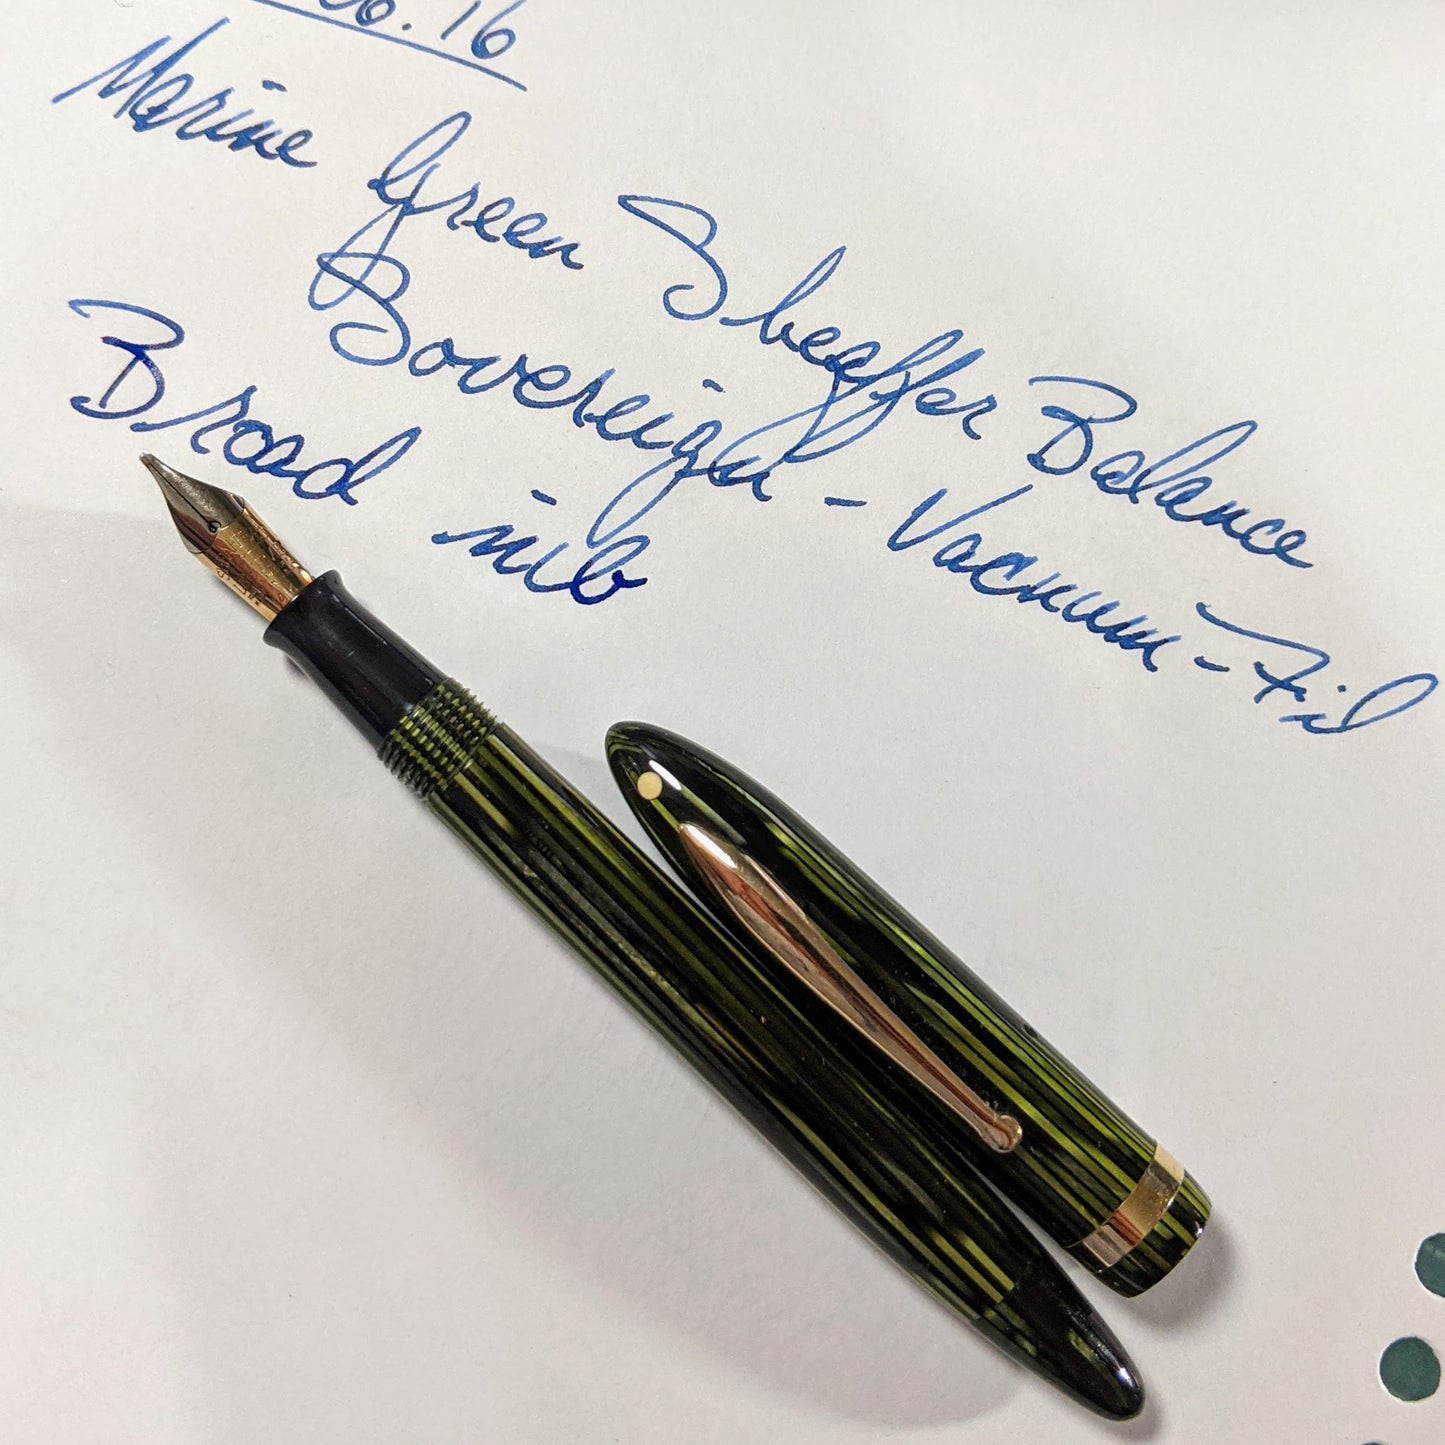 No. 16
Marine Green Sheaffer Balance
Sovereign - Vacuum-Fil
Broad nib